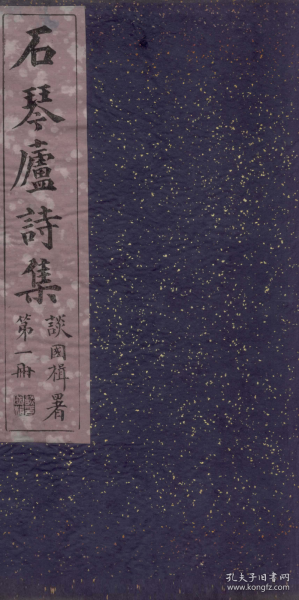 石琴廬詩集
談國楫署
第一冊
孔夫子旧书网
www.kongfz.com